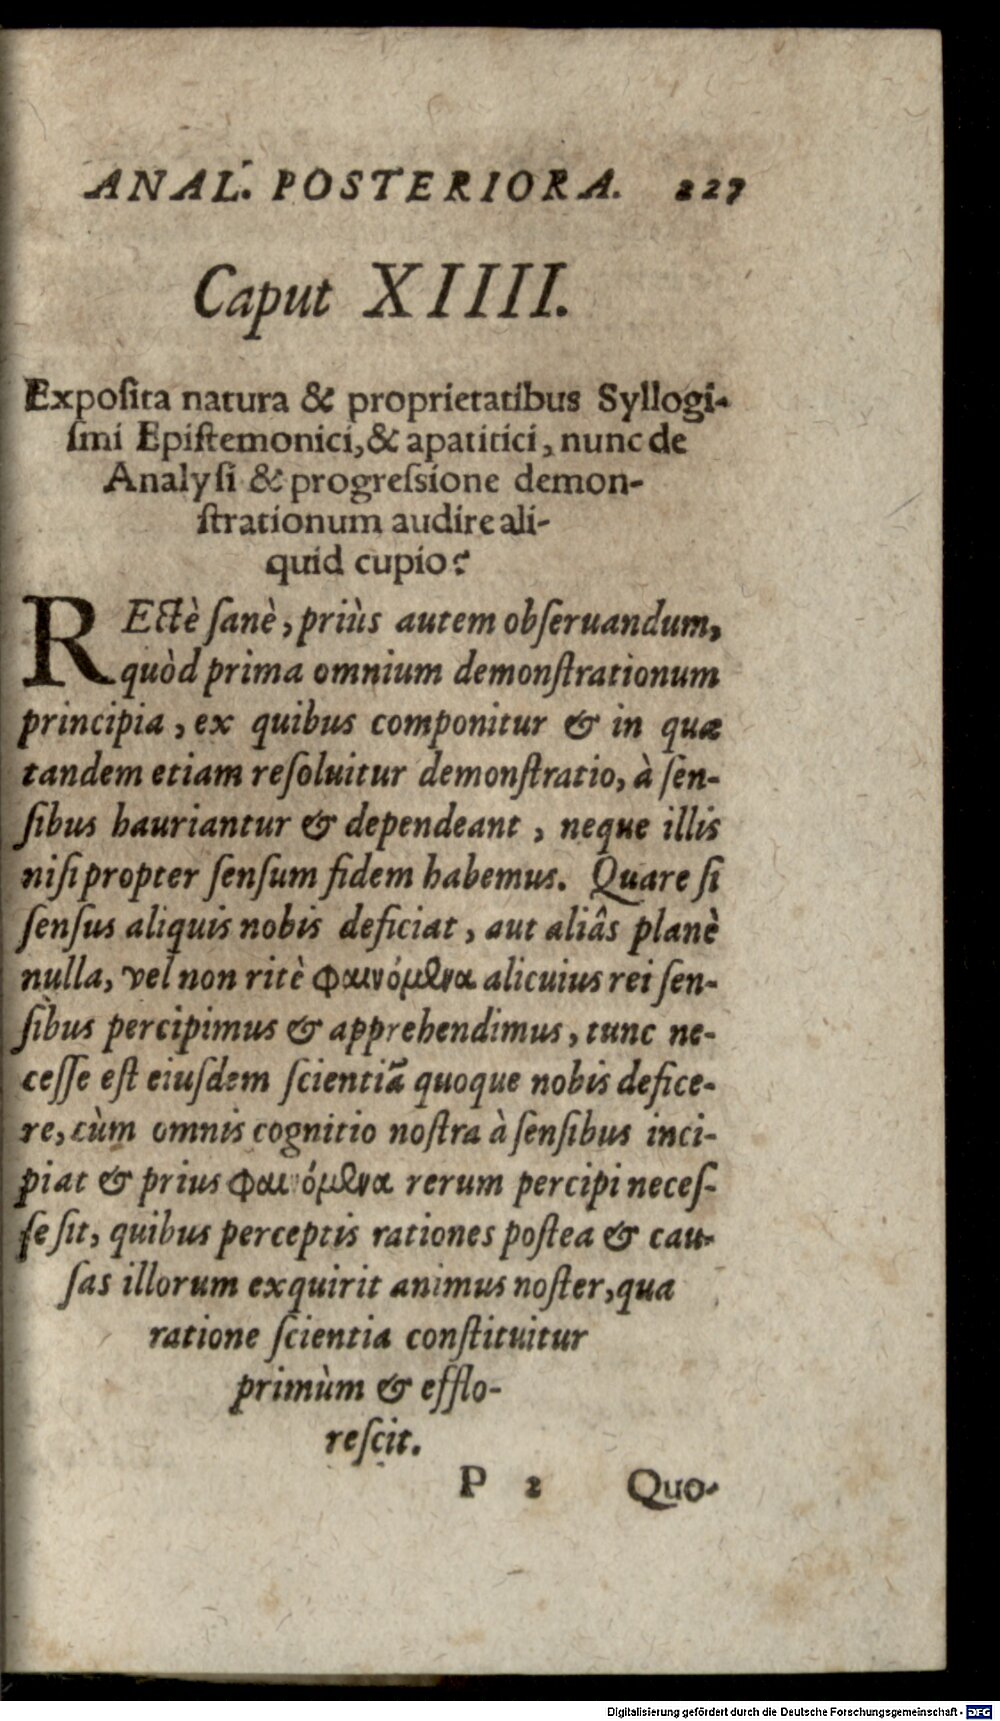 ANAL. POSTERIORA. 227
Caput XIIII.
Expoſita natura & proprietatibus Syllogi-
ſmi Epiſtemonici, & apatitici, nunc de
Analyſi & progreſsione demon-
ſtrationum audire ali-
quid cupio?
REctè ſanè, priùs autem obſeruandum,
quòd prima omnium demonſtrationum
principia, ex quibus componitur & in quæ
tandem etiam reſoluitur demonſtratio, à ſen-
ſibus hauriantur & dependeant, neque illis
niſi propter ſenſum fidem habemus. Quare ſi
ſenſus aliquis nobis deficiat, aut aliâs planè
nulla, vel non ritè φαινόμϣα alicuius rei ſen-
ſibus percipimus & apprehendimus, tunc ne-
ceſſe eſt eiuſdem ſcientiã quoque nobis defice-
re, cùm omnis cognitio noſtra à ſenſibus inci-
piat & prius φαινόμϣα rerum percipi neceſ-
ſe ſit, quibus perceptis rationes poſtea & cau-
ſas illorum exquirit animus noſter, qua
ratione ſcientia conſtituitur
primùm & efflo-
reſcit.
P 2 Quo-
Digitalisierung gefördert durch die Deutsche Forschungsgemeinschaft - DFG